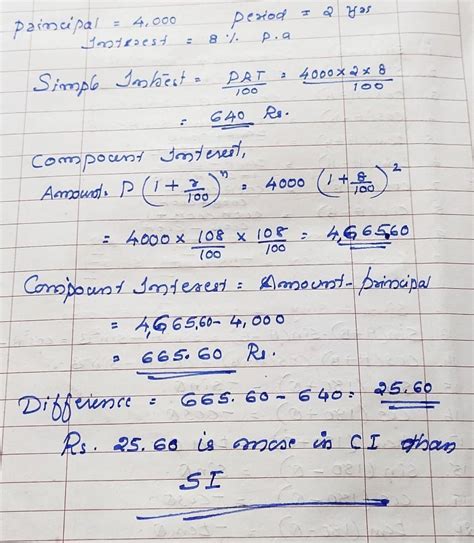 Principal = 4,000 Period = 2 yrs
Interest = 8 % p.a
Simple Interest = PRT/100 = 4000 × 2 × 8/100
= 640 Rs.
Compount Interest,
Amount = P (1 + r/100)^n = 4000 (1 + 8/100)^2
= 4000 × 108/100 × 108/100 = 4,665.60
Compount Interest = Amount - principal
= 4,665.60 - 4,000
= 665.60 Rs.
Difference = 665.60 - 640 = 25.60
Rs. 25.60 is more in CI than
SI